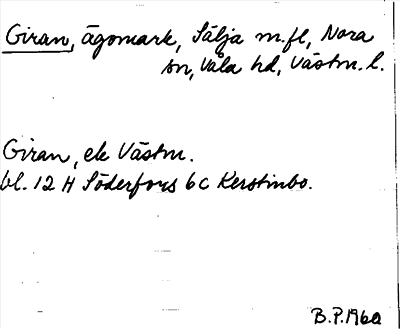 Giran, ägomark, Sälja m.fl, Nora
sn, Våla hd, Västm. l.
Giran, ek Västm.
bl. 12 H Söderfors 6 c Kerstinbo.
B.P. 1960